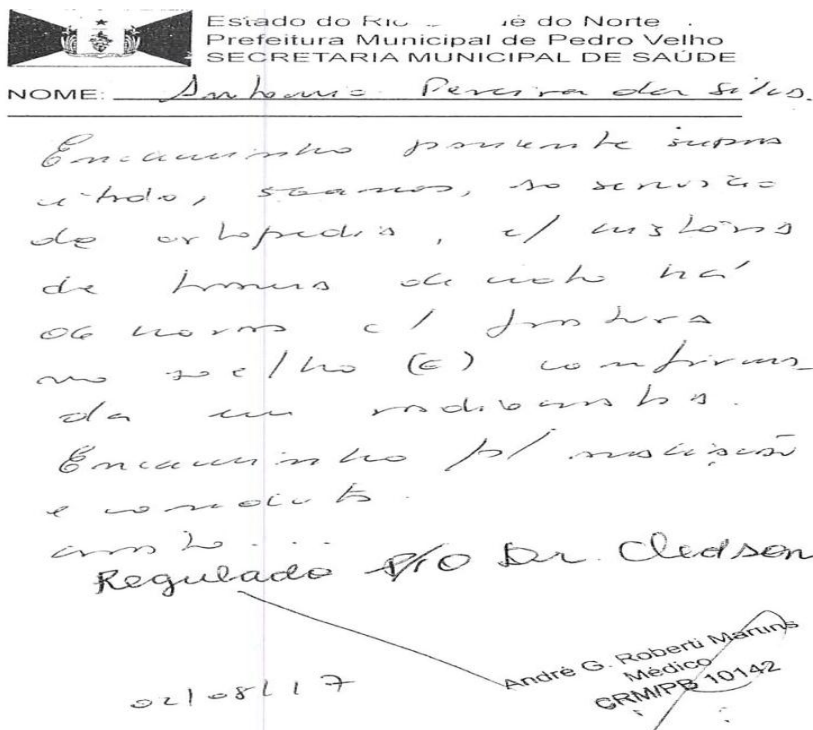 Estado do Rio do Norte
Prefeitura Municipal de Pedro Velho
SECRETARIA MUNICIPAL DE SAÚDE
NOME: Pereira da Silva.
Encaminho paciente supra
citado, ao serviço
de ortopedia, c/ história
de trauma direto há
06 horas c/ fratura
no joelho (E) confirma
da em
Encaminho p/ avaliação
e conduta.
Regulado p/o Dr. Cledson
André G. Roberti Martins
Médico
CRM/PB 10142
02/08/17